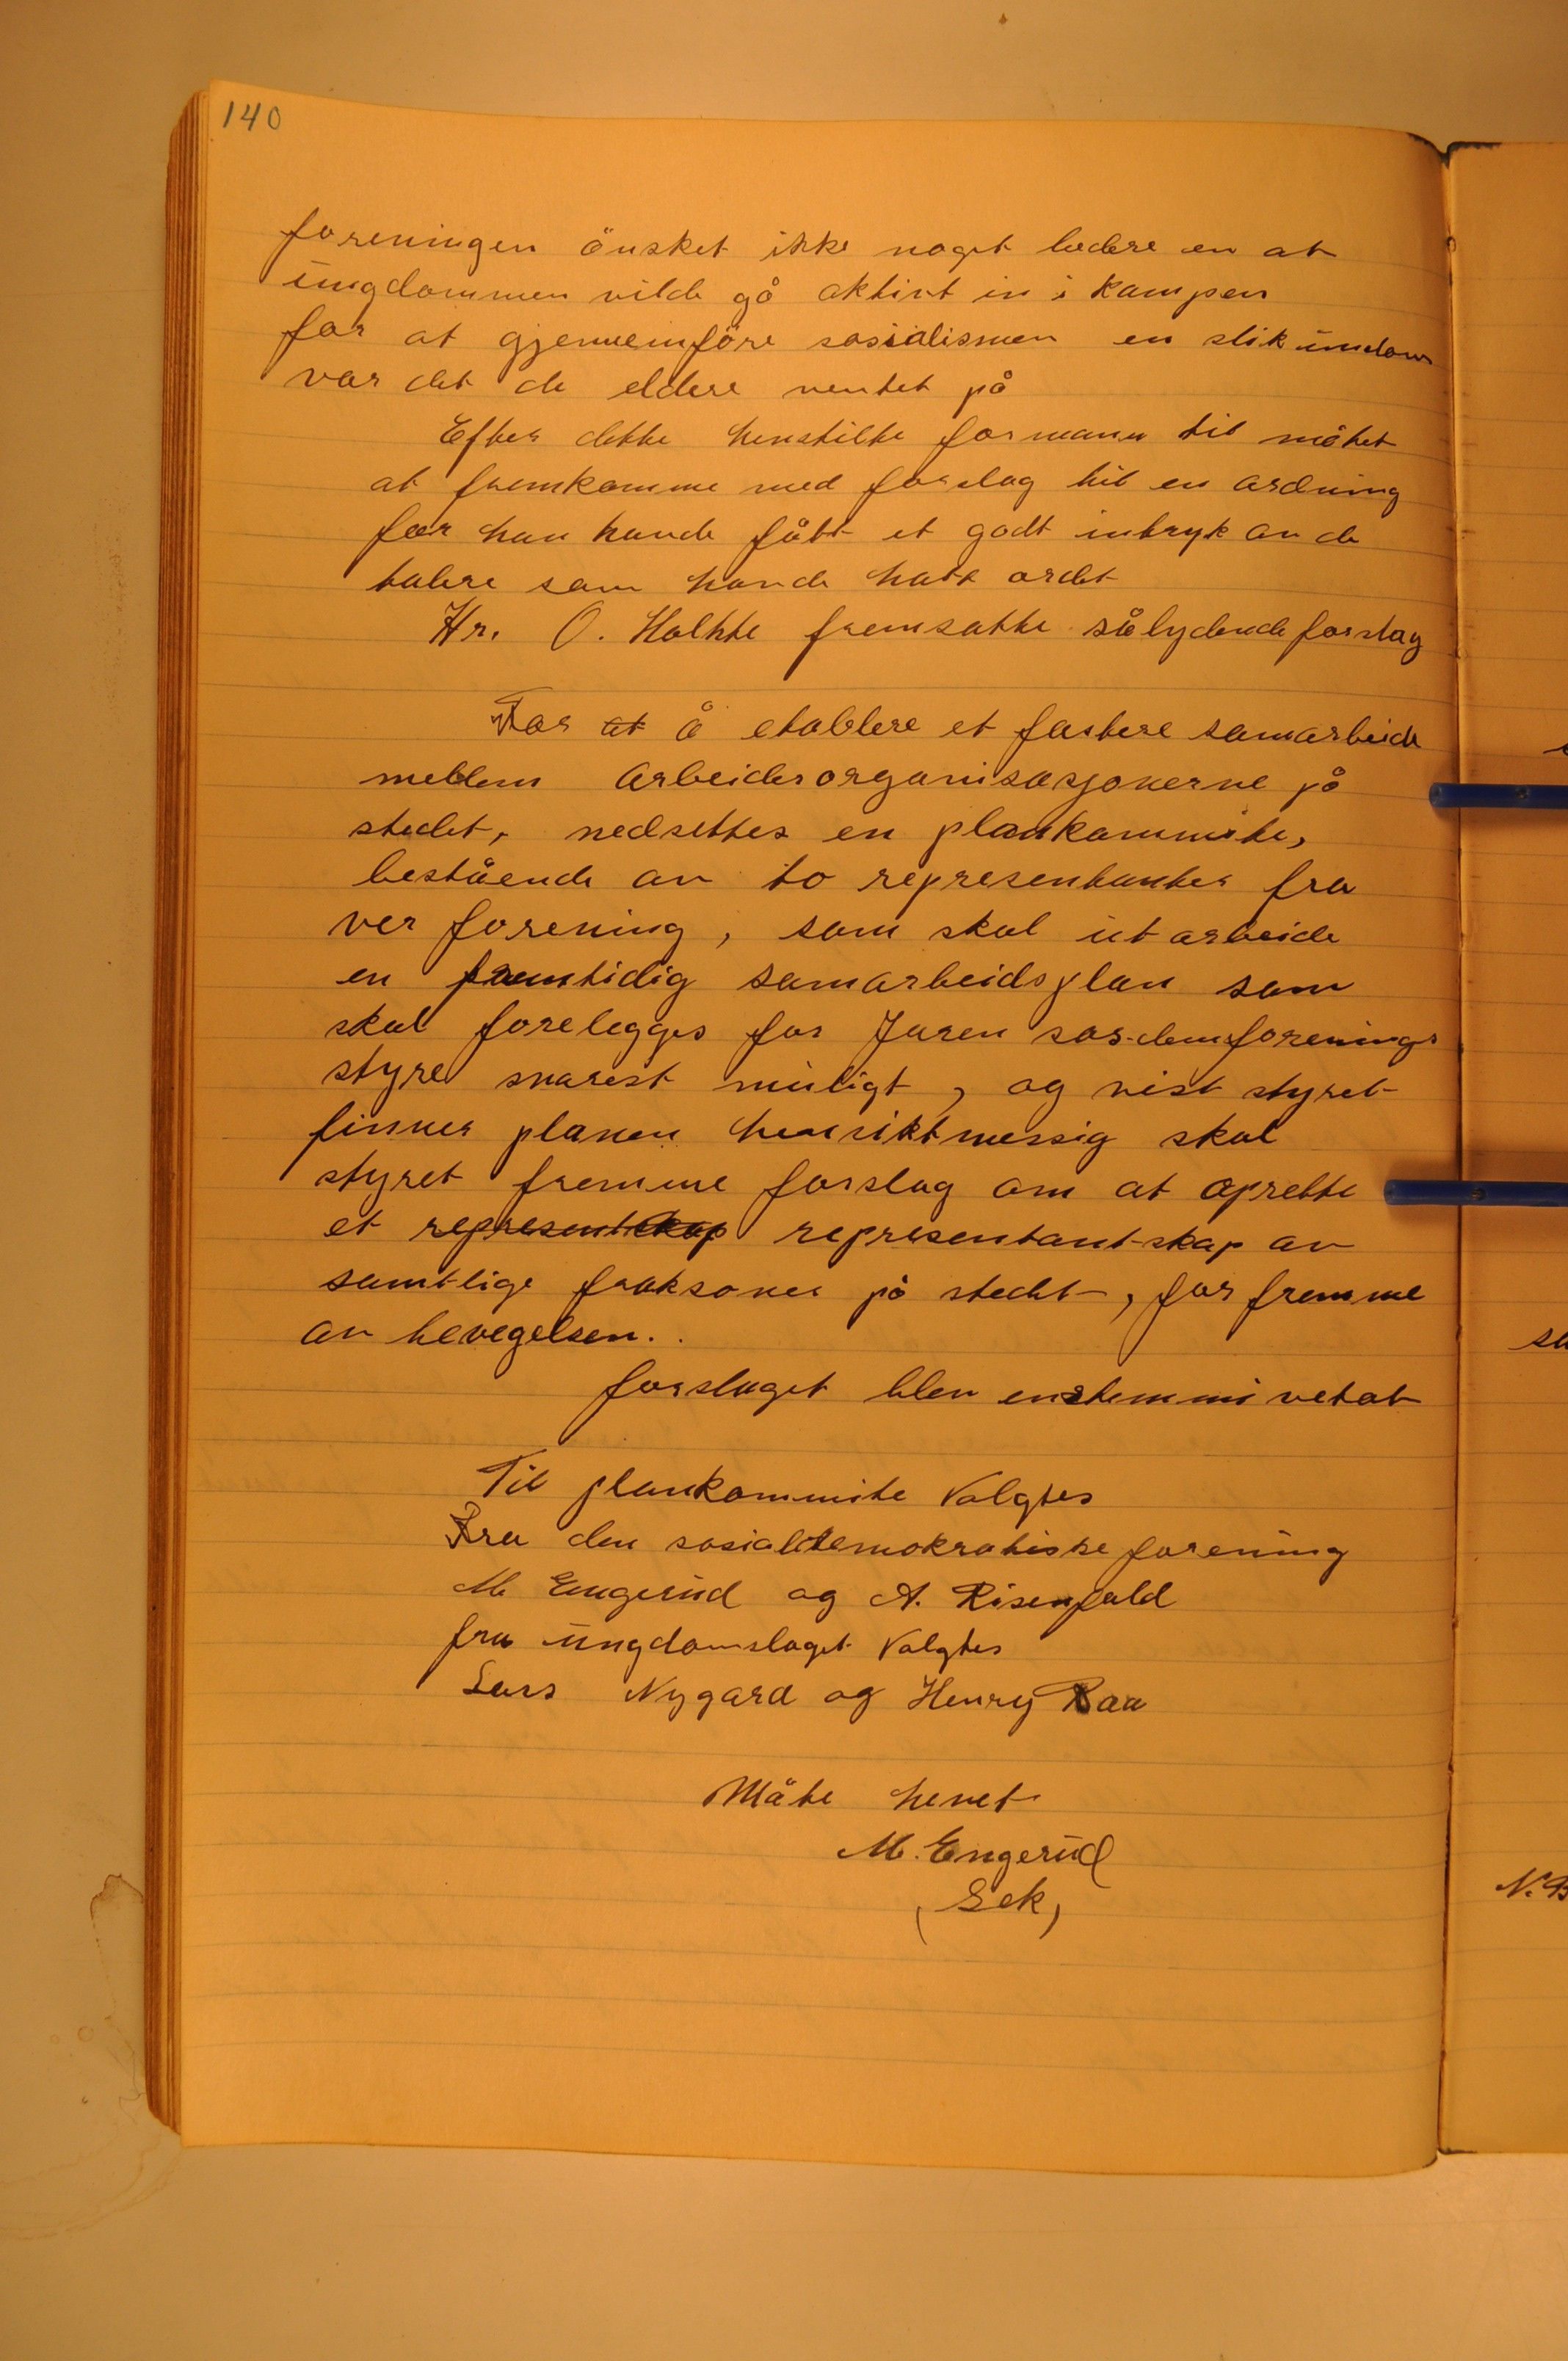 140
foreningen önsket ikke noget bedere en at
ungdommen vilde gå aktivt in i kampen
for at gjennemföre sosialismen en slik undom
var det de eldere ventet på
Efter dette henstilte formann til mötet
at fremkomme med forslag til en ordning
for han havde fått et godt intryk av de
talere som havde hatt ordet
Hr. O. Holhte fremsatte sålydende forslag
For at å etablere et fastere samarbeide
mellem arbeiderorganisasjonerne på
stedet, nedsettes en plankommite,
bestående av to representanter fra
ver forening, som skal utarbeide
en framtidig samarbeidsplan som
skal forelegges for Jaren sos-demforenings
styre snarest muligt, og vist styret
finner planen hensiktmessig skal
styret fremme forslag om at oprette
et representskap representantskap av
samtlige fraksoner på stedet, for fremme
av bevegelsen.
forslaget blev enstemmi vetat
Til plankommite Valgtes
Fra den sosialdemokratiske forening
M Engerud og A. Risenfald
fra ungdomslaget Valgtes
Lars Nygard og Henry Raa
Möte hevet
M. Engerud
(Sek)
N. B